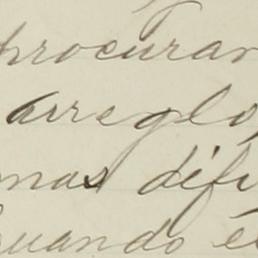 procurar
arreglo,
mas difi
Cuando é